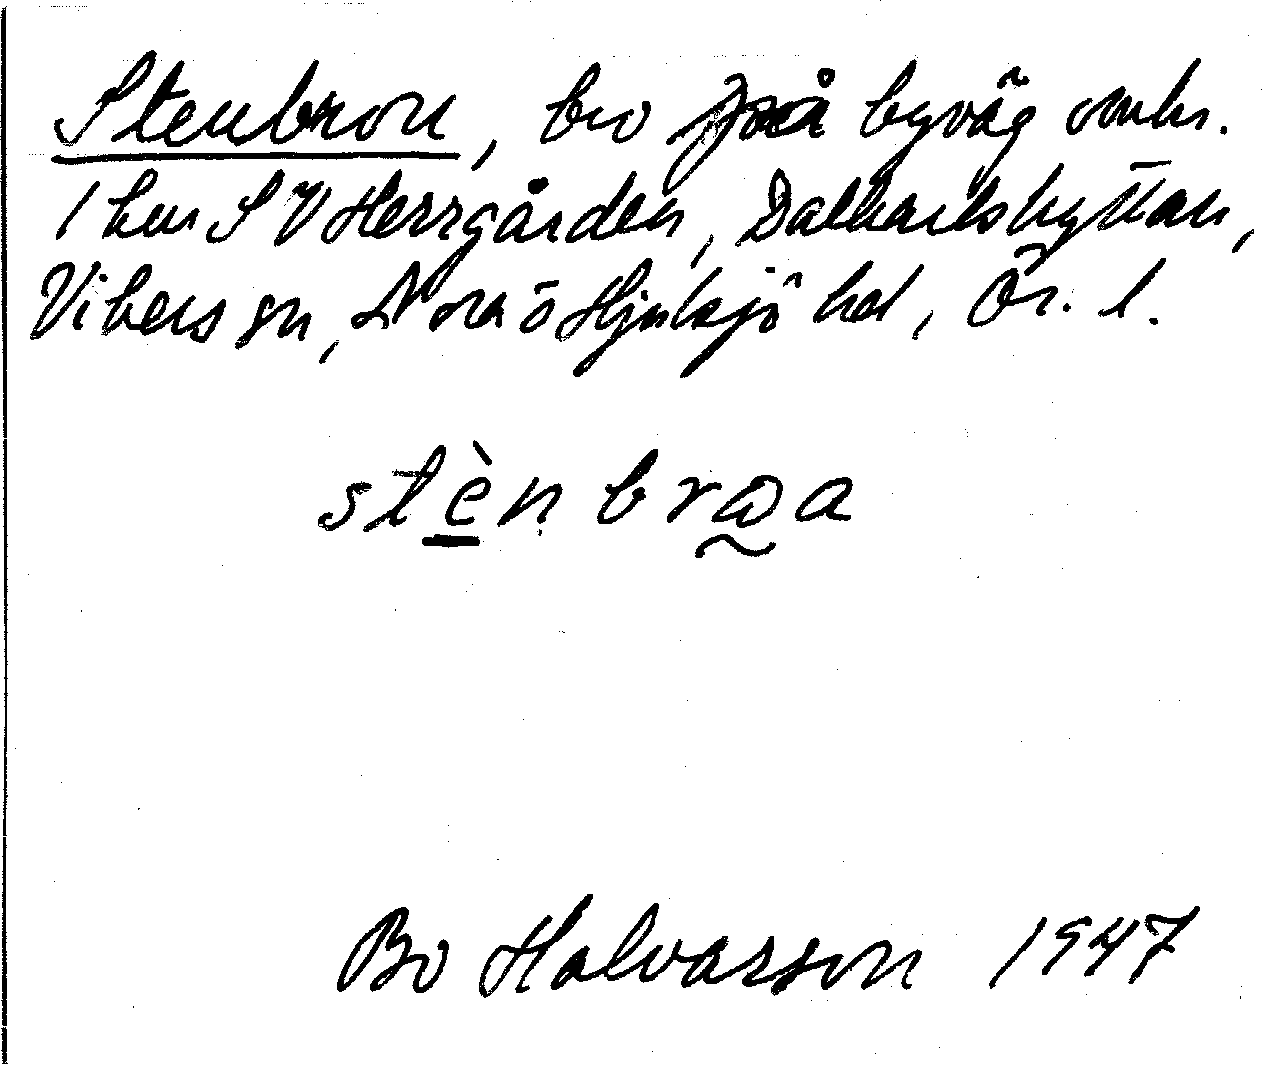 Stenbron, bro på byväg omkr.
1 km SV Herrgården, Dalkarlshyttan,
Vikers sn, Nora o Hjulsjö hd, Ör. l.
stènbrωa
Bo Halvarson 1947